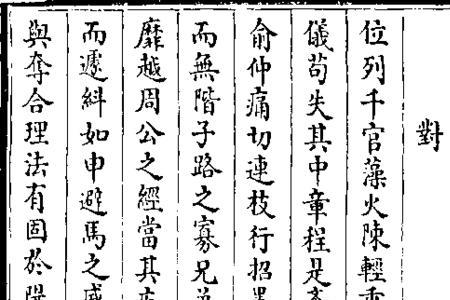 對
位列千官藻火陳輕重
儀苟失其中章程是
俞仲痛切連枝行招
而無階子路之寡兄
靡越周公之經當其
而遽糾如申避馬之威
與奪合理法有固於